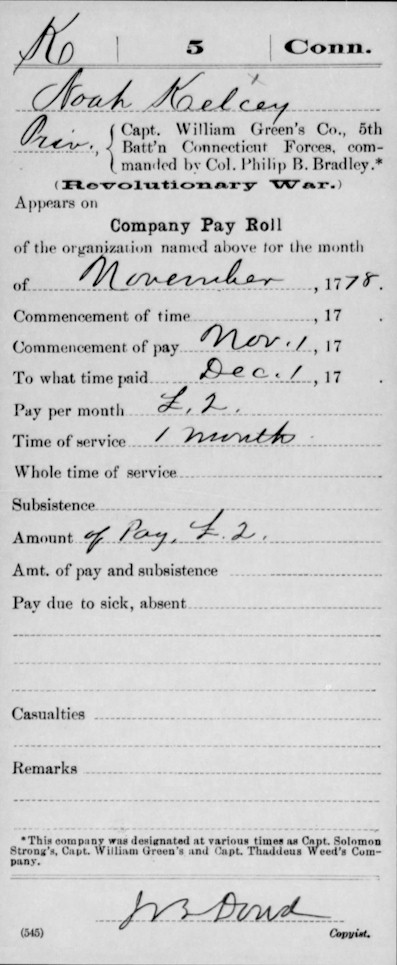 K 5 Conn.
Noah Kelcey
Priv., Capt. William Green's Co., 5th
Batt'n Connecticut Forces, com-
manded by Col. Philip B. Bradley.*
(Revolutionary War.)
Appears on
Company Pay Roll
of the organization named above for the month
of November, 1778.
Commencement of time, 17 .
Commencement of pay Nov. 1, 17 .
To what time paid Dec. 1, 17 .
Pay per month £. 2.
Time of service 1 month
Whole time of service
Subsistence
Amount of Pay, £. 2.
Amt. of pay and subsistence
Pay due to sick, absent
Casualties
Remarks
*This company was designated at various times as Capt. Solomon
Strong's, Capt. William Green's and Capt. Thaddeus Weed's Com-
pany.
Dowd
(545) Copyist.